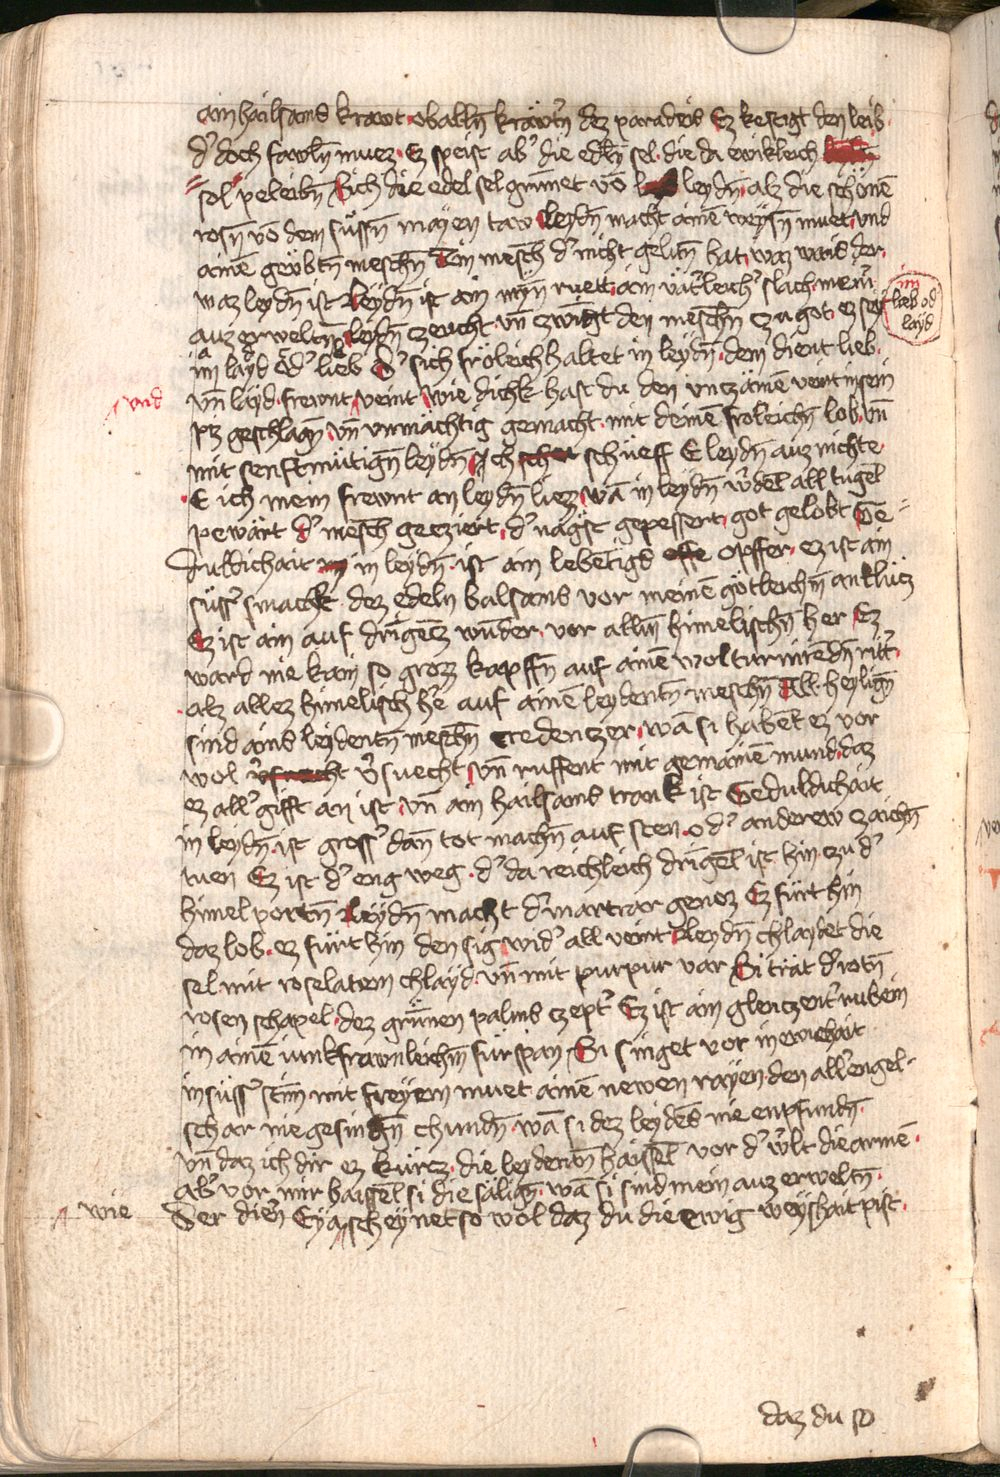 ain hailsamb krawt ob alln̄ kräwtn̄ dez paradeis Ez kestigt den leib
d' doch fawln̄ muez · Ez speist ab' die edln̄ sel · die da ewikleich
sol peleibn̄ Sich die edel sel grünet vō leydn̄ alz die schönē
rosn̄ vō dem süssn̄ mayen taw Leydn̄ macht ainē weysn̄ muet vnd
ainē geübtn̄ meschn̄ Ein mesch d' nicht gelitn̄ hat waz wais der
waz leydn̄ ist Leydn̄ ist ain myn̄ ruett ain vät'leich' slach meinē
auz erweltn̄ Leydn̄ czeucht vn̄ czwingt den meschn̄ czu got · ez sey
im layd od' lieb D' sich fröleich haltet in leydn̄ · dem dient lieb
im
lieb od
layd
vn̄ layd · frewnt veint Wie dichk hast du den vnczämē veintn̄ sein
vnd
piz geschlagn̄ vn̄ vnmächtig gemacht · mit deinē froleichn̄ lob · vn̄
mit senftmütign̄ leydn̄ Ich schüeff E leydn̄ auz nichte
E ich mein frewnt an leydn̄ liez Wā in leydn̄ w'dēt all tugēt
pewärt d' mesch gecziert · d' nägst gepessert · got gelobt Ge-
dultichait in leydn̄ · ist ain lebētigs opffer · ez ist ain
süss' smachk dez edeln balsams vor meinē götleichn̄ antlücz
Ez ist ain auf dringētz wunder · vor alln̄ himelischn̄ her Ez
ward nie kain so grozz kapffn̄ auf ainē wol turnirēdn̄ ritt'
alz allez himelisch he' auf ainē leydentn̄ meschn̄ All heylign̄
sind ains leidentn̄ meschn̄ credenczer · wā si habēt ez vor
wol v'suecht vn̄ ruffent mit gemainē mund · daz
ez all' gifft an ist vn̄ ain hailsams trank ist Gedultichait
in leydn̄ · ist gross' dan̄ tot machn̄ auf sten · od' anderew zaichn̄
tuen Ez ist d' eng weg · d' da reichleich dringēt ist hin · czu d'
himel portn̄ Leydn̄ macht d' martrar genoz Ez fürt hin
daz lob · ez fürt hin den sig wid' all veint Leydn̄ chlaydet die
sel mit roselatem chlayd · vn̄ mit purpur var Si trät d' rotn̄
rosen schapel · dez grünen palms czept' Ez ist ain gleiczent' rubein
in ainē iunkfrawnleichn̄ fürspan Si singet vor in ewichait
in süss' stim mit freyem muet ainē newen rayen den all' engel-
schar nie gesingn̄ chundn̄ wā si dez leydēs nie enpfundn̄
vn̄ daz ich dir ez kürcz · die leydentn̄ haissēt vor d' w'lt die armē
ab' vor mir haissēt si die säligen · wā si sind mein auz erweltn̄
wie
Der dien' Eya scheynet so wol daz du die ewig weyshait pist
daz du so